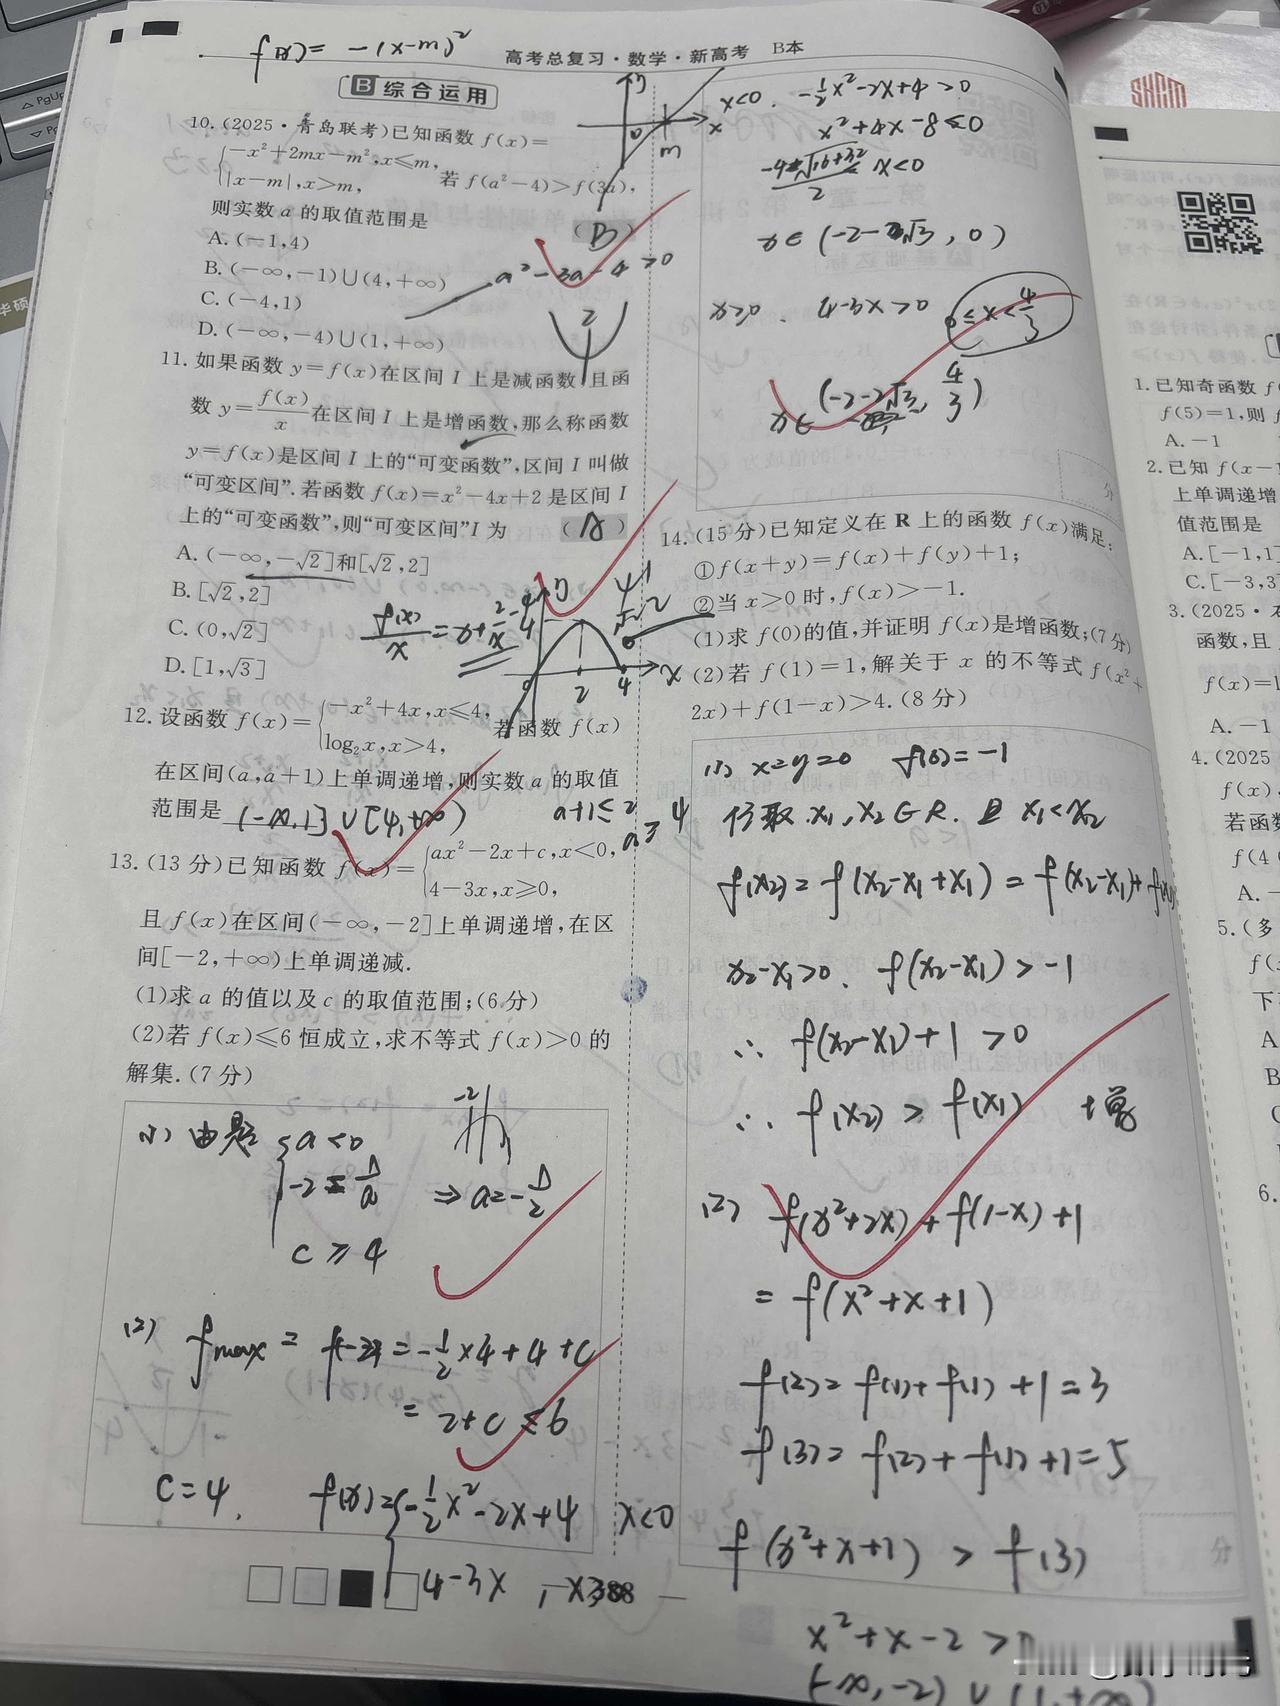 f(x)= -(x-m)²
高考总复习·数学·新高考 B本
B 综合运用
10.(2025·青岛联考)已知函数 f(x)=
{-x²+2mx-m²,x≤m,
|x-m|,x>m, 若 f(a²-4)>f(3a),
则实数 a 的取值范围是 (B)
A.(-1,4)
B.(-∞,-1)∪(4,+∞)
C.(-4,1)
D.(-∞,-4)∪(1,+∞)
a²-3a-4>0
11.如果函数 y=f(x)在区间 I 上是减函数,且函
数 y=f(x)/x 在区间 I 上是增函数,那么称函数
y=f(x)是区间 I 上的“可变函数”,区间 I 叫做
“可变区间”.若函数 f(x)=x²-4x+2 是区间 I
上的“可变函数”,则“可变区间”I 为 (A)
A.(-∞,-√2]和[√2,2]
B.[√2,2]
C.(0,√2]
D.[1,√3]
f(x)/x = x+2/x-4
12.设函数 f(x)={-x²+4x,x≤4,
log₂x,x>4, 若函数 f(x)
在区间(a,a+1)上单调递增,则实数 a 的取值
范围是 (-∞,1]∪[4,+∞)
a+1≤2
a≥4
13.(13 分)已知函数 f(x)={ax²-2x+c,x<0,
4-3x,x≥0,
且 f(x)在区间(-∞,-2]上单调递增,在区
间[-2,+∞)上单调递减.
(1)求 a 的值以及 c 的取值范围;(6分)
(2)若 f(x)≤6 恒成立,求不等式 f(x)>0 的
解集.(7 分)
(1) 由题 {a<0
-2=1/a ⇒a=-1/2
c≥4
-2
(2) fmax = f(-2)=-1/2×4+4+c
= 2+c≤6
c=4. f(x)={-1/2x²-2x+4 x<0
4-3x , x≥0
x<0. -1/2x²-2x+4>0
x²+4x-8≤0
x<0
x∈(-2-2√3,0)
x≥0. 4-3x>0 0≤x<4/3
x∈(-2-2√3,4/3)
分
14.(15 分)已知定义在 R 上的函数 f(x)满足:
①f(x+y)=f(x)+f(y)+1;
②当 x>0 时,f(x)>-1.
(1)求 f(0)的值,并证明 f(x)是增函数;(7分)
(2)若 f(1)=1,解关于 x 的不等式 f(x²+
2x)+f(1-x)>4.(8 分)
(1) x=y=0 f(0)=-1
任取 x₁,x₂∈R. 且 x₁<x₂
f(x₂)=f(x₂-x₁+x₁)=f(x₂-x₁)+f(x₁)
x₂-x₁>0. f(x₂-x₁)>-1
∴ f(x₂-x₁)+1>0
∴ f(x₂)>f(x₁) 增
(2) f(x²+2x)+f(1-x)+1
= f(x²+x+1)
f(2)=f(1)+f(1)+1=3
f(3)=f(2)+f(1)+1=5
f(x²+x+1)>f(3)
分
x²+x-2>0
(-∞,-2)∪(1,+∞)
SHCM
1.已知奇函数 f(
f(5)=1,则 f
A.-1
2.已知 f(x-1
上单调递增
值范围是
A.[-1,1]
C.[-3,3
3.(2025·
函数,且
f(x)=1
A.-1
4.(2025
f(x)
若函数
f(4
A.-
5.(多
f(
下
A
B
6.
PgUp
华硕